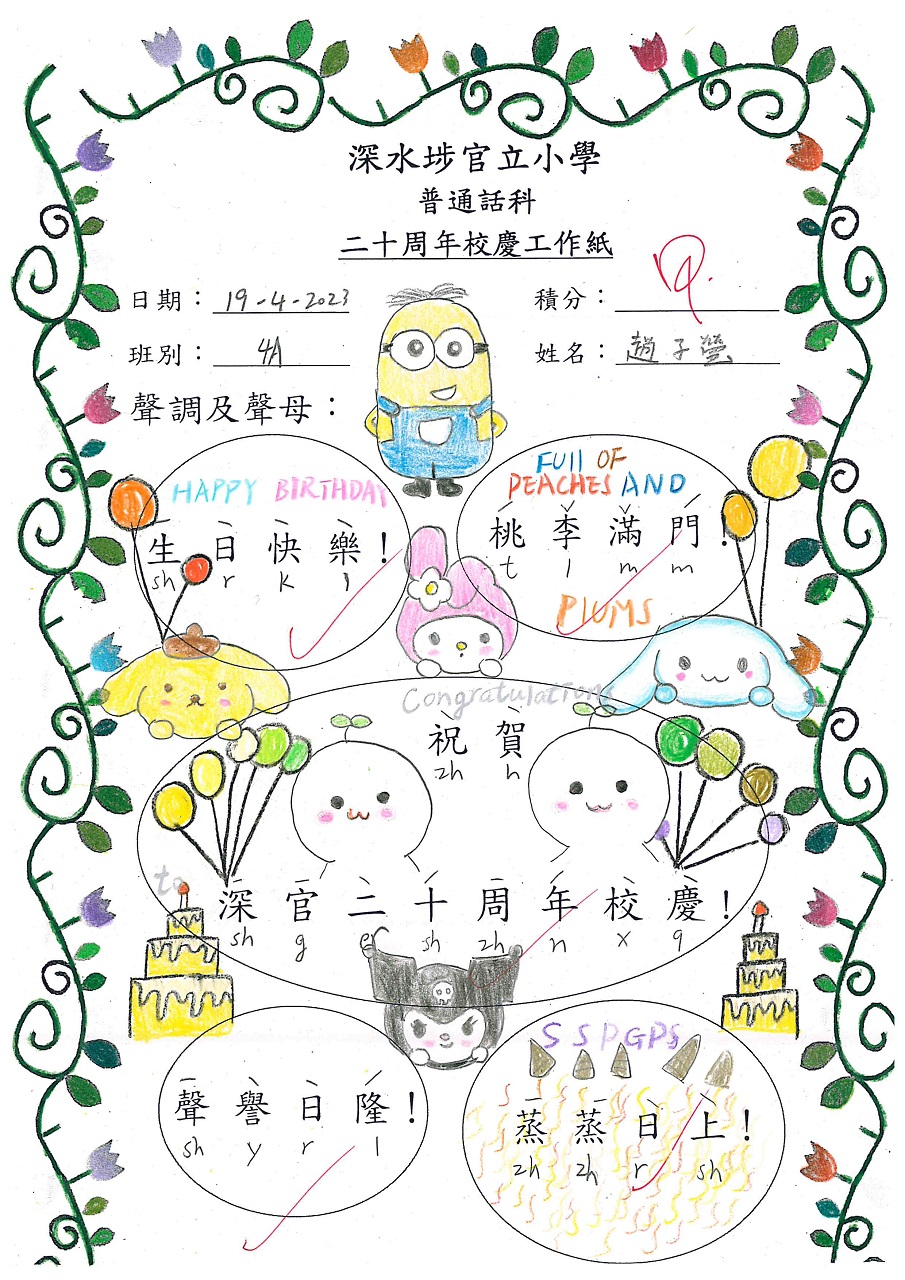 深水埗官立小學
普通話科
二十周年校慶工作紙
日期： 19-4-2023 積分：
班別： 4A 姓名： 趙子螢
聲調及聲母：
HAPPY BIRTHDAY
生日快樂！
sh r k l
Full OF
PEACHES AND
桃李滿門！
t l m m
PlUMS
Congratulations
祝賀
zh h
to
深官二十周年校慶！
sh g er sh zh n x q
聲譽日隆！
sh y r l
SSPGPS
蒸蒸日上！
zh zh r sh